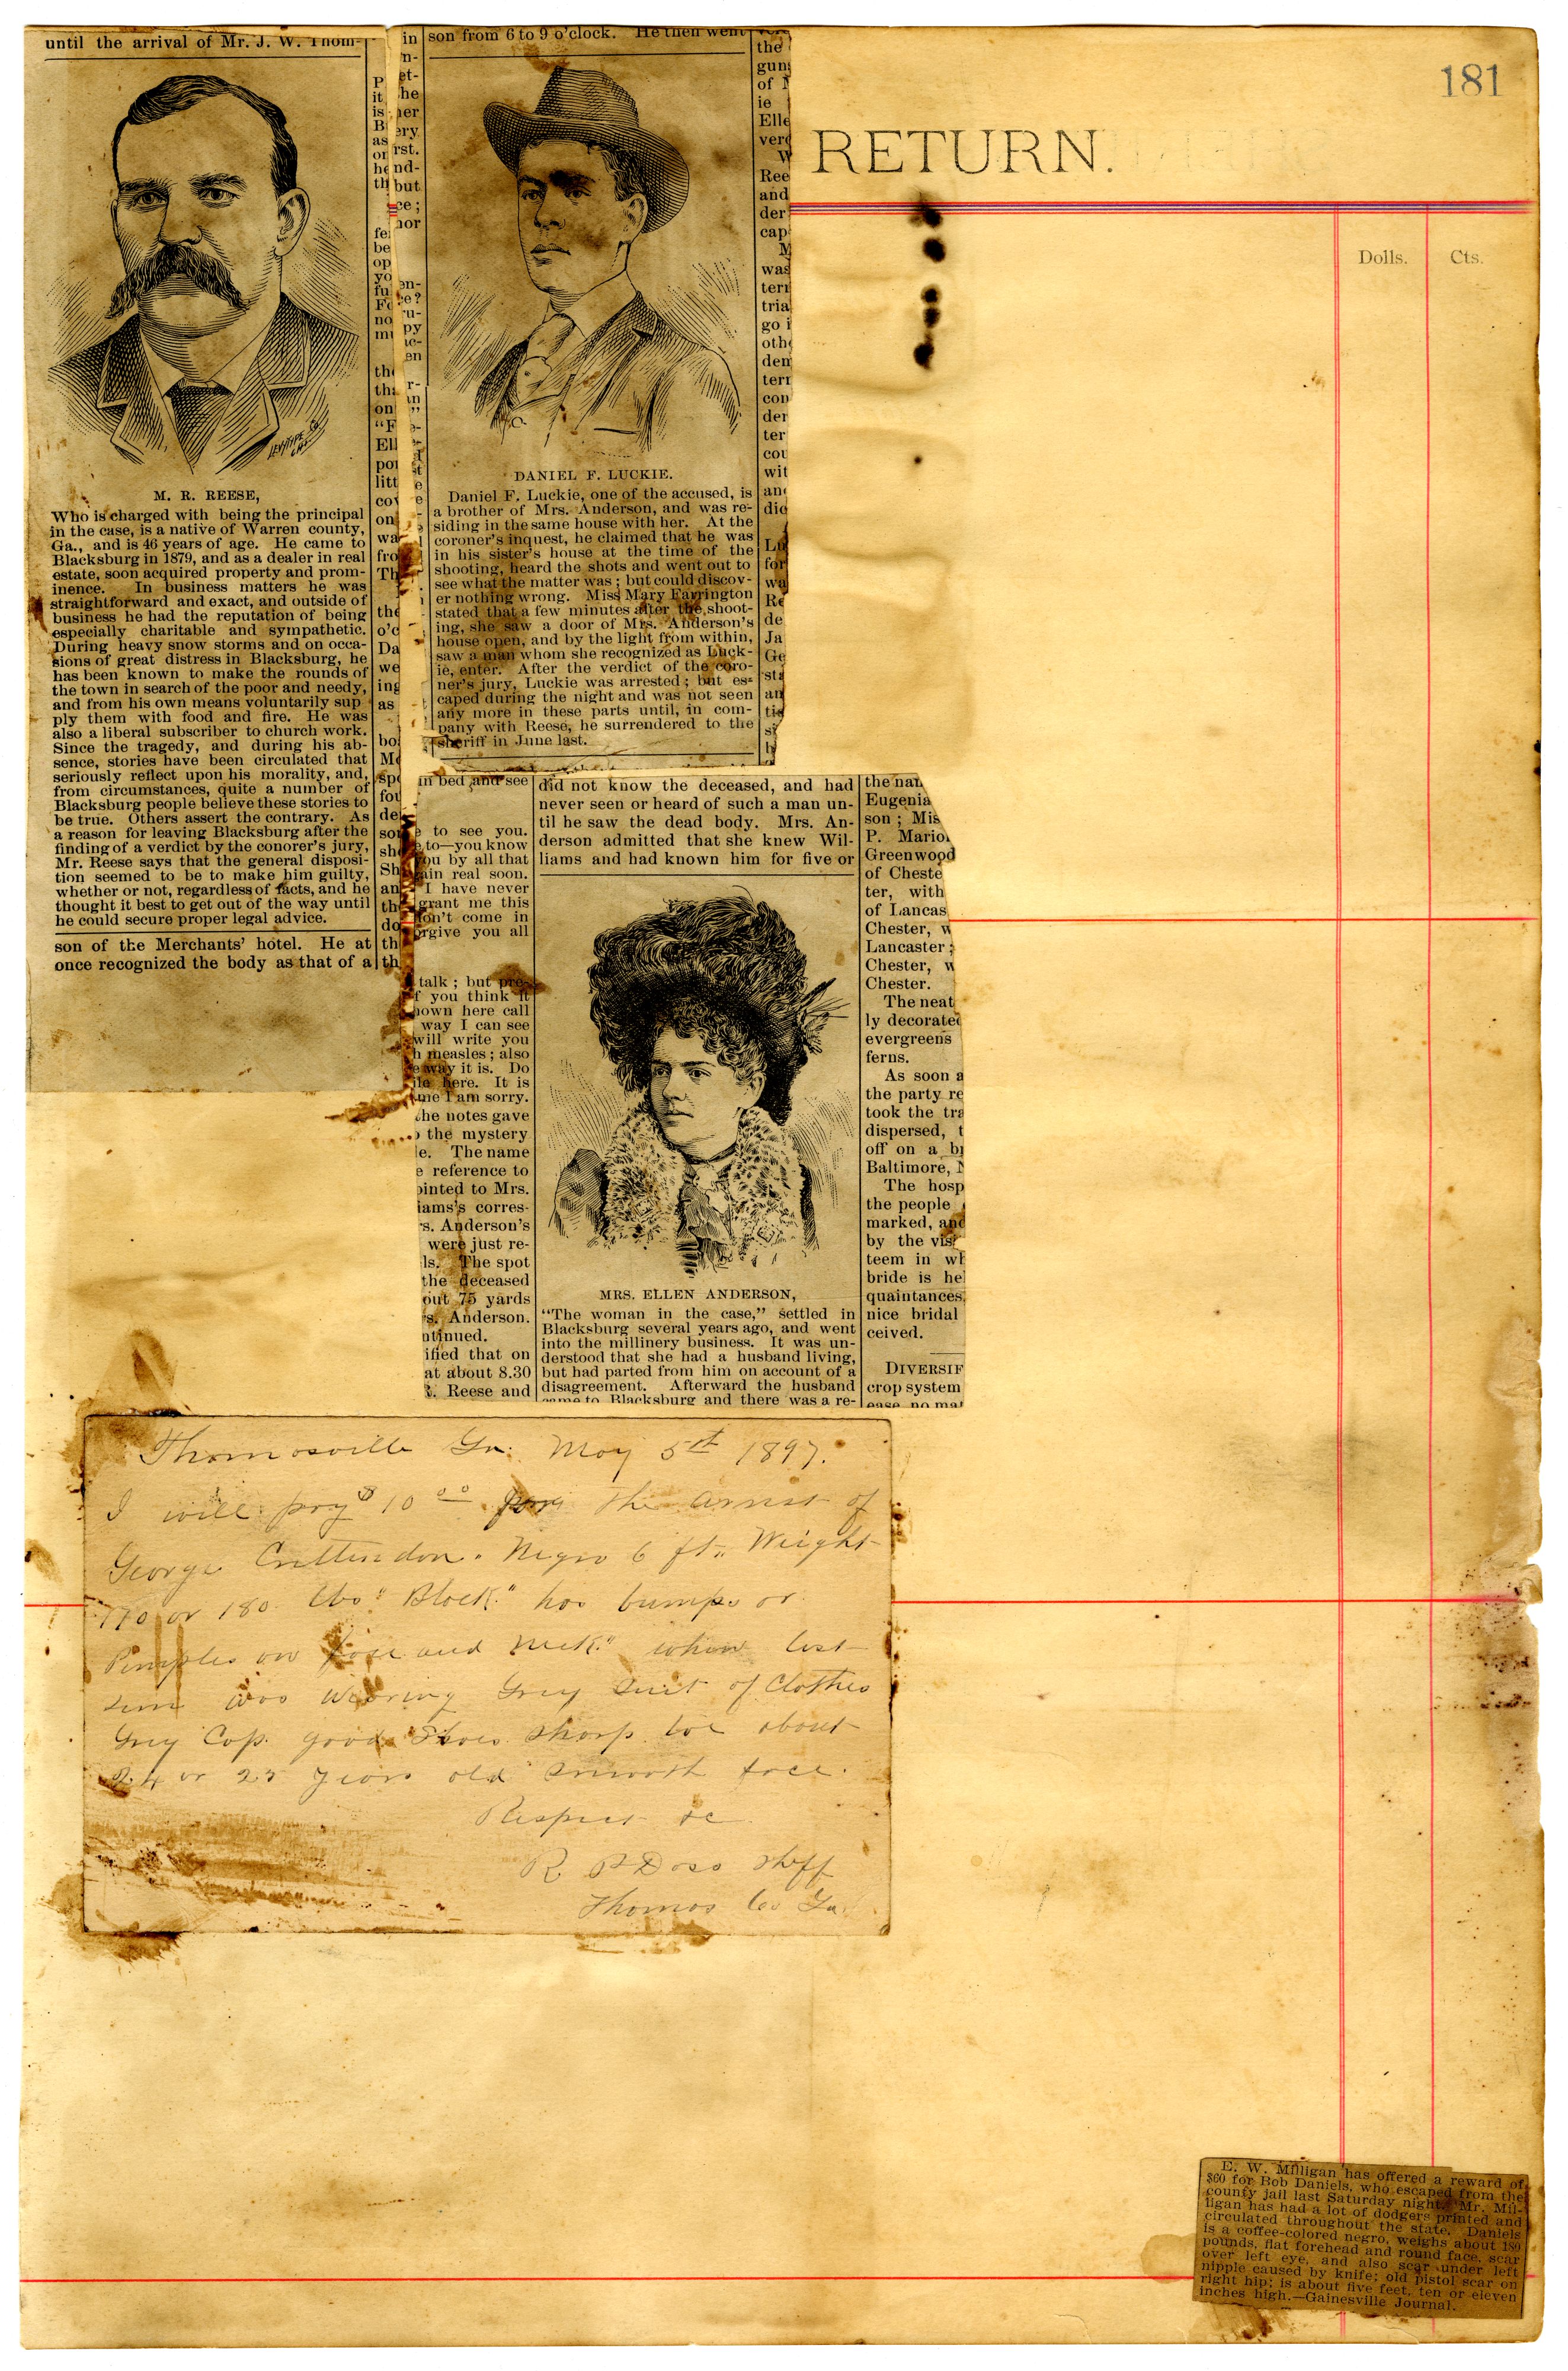 181
RETURN.
Dolls. Cts.
until the arrival of Mr. J. W. Thom-
M. R. REESE,
Who is charged with being the principal
in the case, is a native of Warren county,
Ga., and is 46 years of age. He came to
Blacksburg in 1879, and as a dealer in real
estate, soon acquired property and prom-
inence. In business matters he was
straightforward and exact, and outside of
business he had the reputation of being
especially charitable and sympathetic.
During heavy snow storms and on occa-
sions of great distress in Blacksburg, he
has been known to make the rounds of
the town in search of the poor and needy,
and from his own means voluntarily sup
ply them with food and fire. He was
also a liberal subscriber to church work.
Since the tragedy, and during his ab-
sence, stories have been circulated that
seriously reflect upon his morality, and,
from circumstances, quite a number of
Blacksburg people believe these stories to
be true. Others assert the contrary. As
a reason for leaving Blacksburg after the
finding of a verdict by the conorer's jury,
Mr. Reese says that the general disposi-
tion seemed to be to make him guilty,
whether or not, regardless of facts, and he
thought it best to get out of the way until
he could secure proper legal advice.
son of the Merchants' hotel. He at
once recognized the body as that of a
son from 6 to 9 o'clock. He then went
DANIEL F. LUCKIE.
Daniel F. Luckie, one of the accused, is
a brother of Mrs. Anderson, and was re-
siding in the same house with her. At the
coroner's inquest, he claimed that he was
in his sister's house at the time of the
shooting, heard the shots and went out to
see what the matter was; but could discov-
er nothing wrong. Miss Mary Farrington
stated that a few minutes after the shoot-
ing, she saw a door of Mrs. Anderson's
house open, and by the light from within,
saw a man whom she recognized as Luck-
ie, enter. After the verdict of the coro-
ner's jury, Luckie was arrested; but es-
caped during the night and was not seen
any more in these parts until, in com-
pany with Reese, he surrendered to the
sheriff in June last.
in bed and see
to see you.
to—you know
you by all that
ain real soon.
I have never
grant me this
don't come in
orgive you all
talk; but pre-
f you think it
nown here call
way I can see
will write you
h measles; also
e way it is. Do
le here. It is
me I am sorry.
the notes gave
the mystery
e. The name
e reference to
ointed to Mrs.
iams's corres-
rs. Anderson's
were just re-
ls. The spot
the deceased
out 75 yards
s. Anderson.
ntinued.
ified that on
at about 8.30
R. Reese and
did not know the deceased, and had
never seen or heard of such a man un-
til he saw the dead body. Mrs. An-
derson admitted that she knew Wil-
liams and had known him for five or
MRS. ELLEN ANDERSON,
"The woman in the case," settled in
Blacksburg several years ago, and went
into the millinery business. It was un-
derstood that she had a husband living,
but had parted from him on account of a
disagreement. Afterward the husband
came to Blacksburg and there was a re-
the nam
Eugenia
son; Mis
P. Mario
Greenwood
of Cheste
ter, with
of Lancas
Chester, w
Lancaster;
Chester, w
Chester.
The neat
ly decorated
evergreens
ferns.
As soon a
the party re
took the tra
dispersed, t
off on a br
Baltimore, N
The hosp
the people
marked, and
by the vis
teem in wh
bride is hel
quaintances,
nice bridal
ceived.
DIVERSIF
crop system
ease, no mat
Thomasville Ga. May 5th 1897.
I will pay $10.00 for the arrest of
George Crittendon. Negro 6 ft., Weight
170 or 180 lbs "Black" has bumps or
Pimples on face and neck" when last
seen was wearing Grey Suit of Clothes
Grey Cap. good Shoes sharp toe about
24 or 25 years old smooth face.
Respect &c
R. P Doss Shff
Thomas Co Ga.
E. W. Milligan has offered a reward of
$60 for Bob Daniels, who escaped from the
county jail last Saturday night. Mr. Mil-
ligan has had a lot of dodgers printed and
circulated throughout the state. Daniels
is a coffee-colored negro, weighs about 180
pounds, flat forehead and round face, scar
over left eye, and also scar under left
nipple caused by knife; old pistol scar on
right hip; is about five feet, ten or eleven
inches high.—Gainesville Journal.